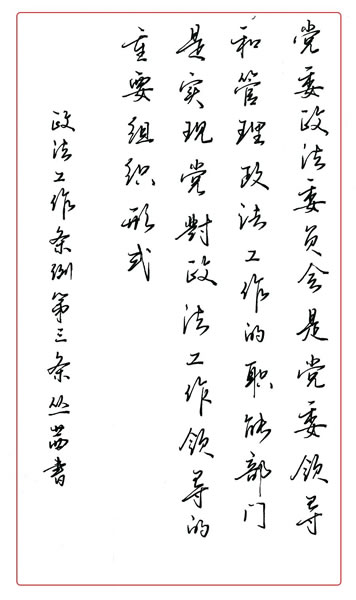 党委政法委员会是党委领导
和管理政法工作的职能部门
是实现党對政法工作领导的
重要组织形式
政法工作条例第三条丛茁书